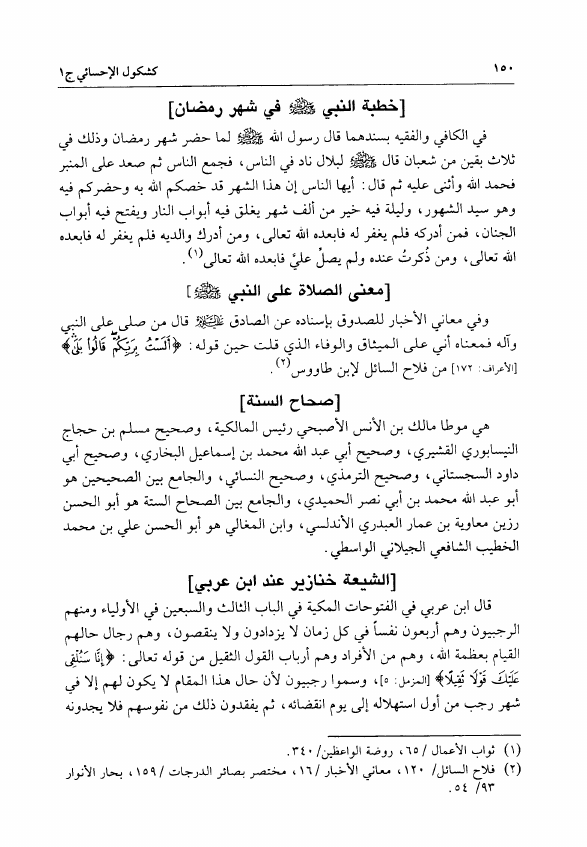 ١٥٠
كشكول الإحسائي ج١
[خطبة النبي ﷺ في شهر رمضان]
في الكافي والفقيه بسندهما قال رسول الله ﷺ لما حضر شهر رمضان وذلك في
ثلاث بقين من شعبان قال ﷺ لبلال ناد في الناس، فجمع الناس ثم صعد على المنبر
فحمد الله وأثنى عليه ثم قال: أيها الناس إن هذا الشهر قد خصكم الله به وحضركم فيه
وهو سيد الشهور، وليلة فيه خير من ألف شهر يغلق فيه أبواب النار ويفتح فيه أبواب
الجنان، فمن أدركه فلم يغفر له فابعده الله تعالى، ومن أدرك والديه فلم يغفر له فابعده
الله تعالى، ومن ذُكرتُ عنده ولم يصلِّ عليَّ فابعده الله تعالى(١).
[معنى الصلاة على النبي ﷺ]
وفي معاني الأخبار للصدوق بإسناده عن الصادق عليه السلام قال من صلى على النبي
وآله فمعناه أني على الميثاق والوفاء الذي قلت حين قوله: ﴿أَلَسْتُ بِرَبِّكُمْ قَالُوا بَلَىٰ﴾
[الأعراف: ١٧٢] من فلاح السائل لإبن طاووس(٢).
[صحاح السنة]
هي موطا مالك بن الأنس الأصبحي رئيس المالكية، وصحيح مسلم بن حجاج
النيسابوري القشيري، وصحيح أبي عبد الله محمد بن إسماعيل البخاري، وصحيح أبي
داود السجستاني، وصحيح الترمذي، وصحيح النسائي، والجامع بين الصحيحين هو
أبو عبد الله محمد بن أبي نصر الحميدي، والجامع بين الصحاح الستة هو أبو الحسن
رزين معاوية بن عمار العبدري الأندلسي، وابن المغالي هو أبو الحسن علي بن محمد
الخطيب الشافعي الجيلاني الواسطي.
[الشيعة خنازير عند ابن عربي]
قال ابن عربي في الفتوحات المكية في الباب الثالث والسبعين في الأولياء ومنهم
الرجبيون وهم أربعون نفساً في كل زمان لا يزدادون ولا ينقصون، وهم رجال حالهم
القيام بعظمة الله، وهم من الأفراد وهم أرباب القول الثقيل من قوله تعالى: ﴿إِنَّا سَنُلْقِي
عَلَيْكَ قَوْلًا ثَقِيلًا﴾ [المزمل: ٥]، وسموا رجبيون لأن حال هذا المقام لا يكون لهم إلا في
شهر رجب من أول استهلاله إلى يوم انقضائه، ثم يفقدون ذلك من نفوسهم فلا يجدونه
(١) ثواب الأعمال /٦٥، روضة الواعظين/٣٤٠.
(٢) فلاح السائل/ ١٢٠، معاني الأخبار /١٦، مختصر بصائر الدرجات /١٥٩، بحار الأنوار
٩٣/ ٥٤.